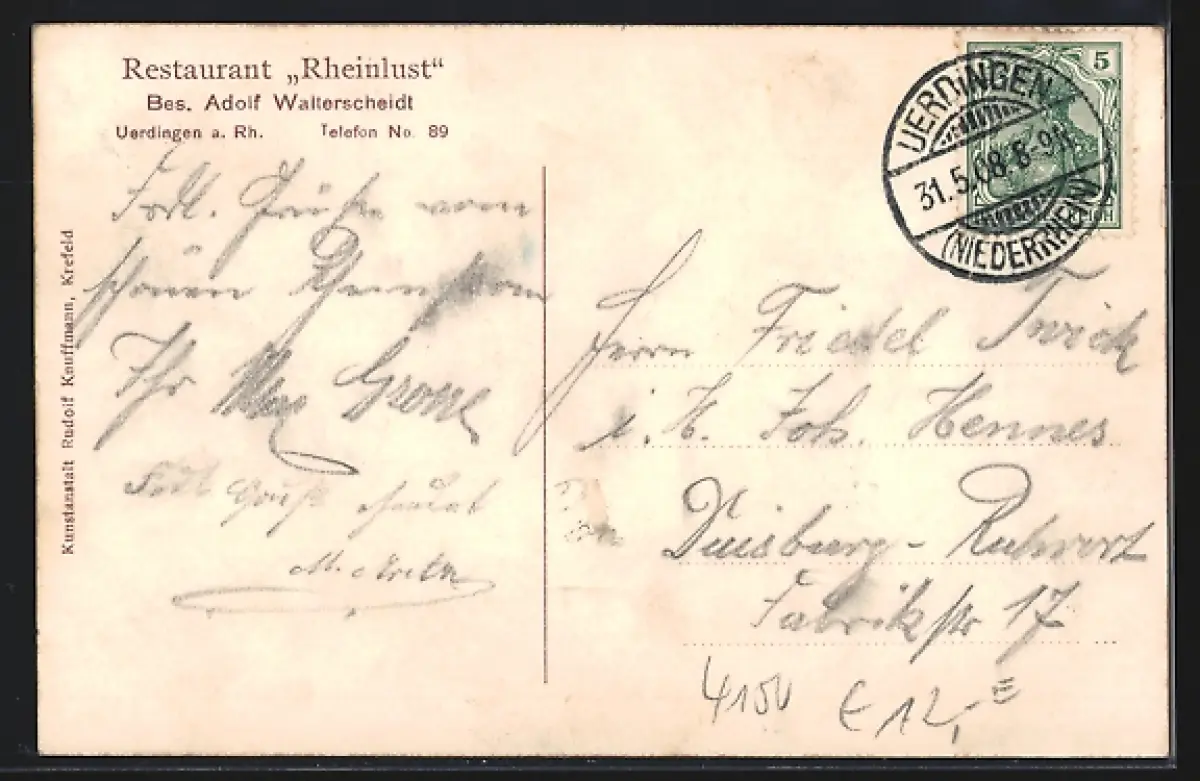 Restaurant „Rheinlust“
Bes. Adolf Walterscheidt
Uerdingen a. Rh. Telefon No. 89
Frdl. Grüße vom
schönen Rheinstrom
Ihr Max
Frdl. Gruß sendet
M.
Kunstanstalt Rudolf Kauffmann, Krefeld
5
UERDINGEN
31.5.08.8-9N.
(NIEDERRHEIN)
Herrn Friedel
i. H. Joh. Hennes
Duisburg-Ruhrort
Fabrikstr 17
4150 € 12,=